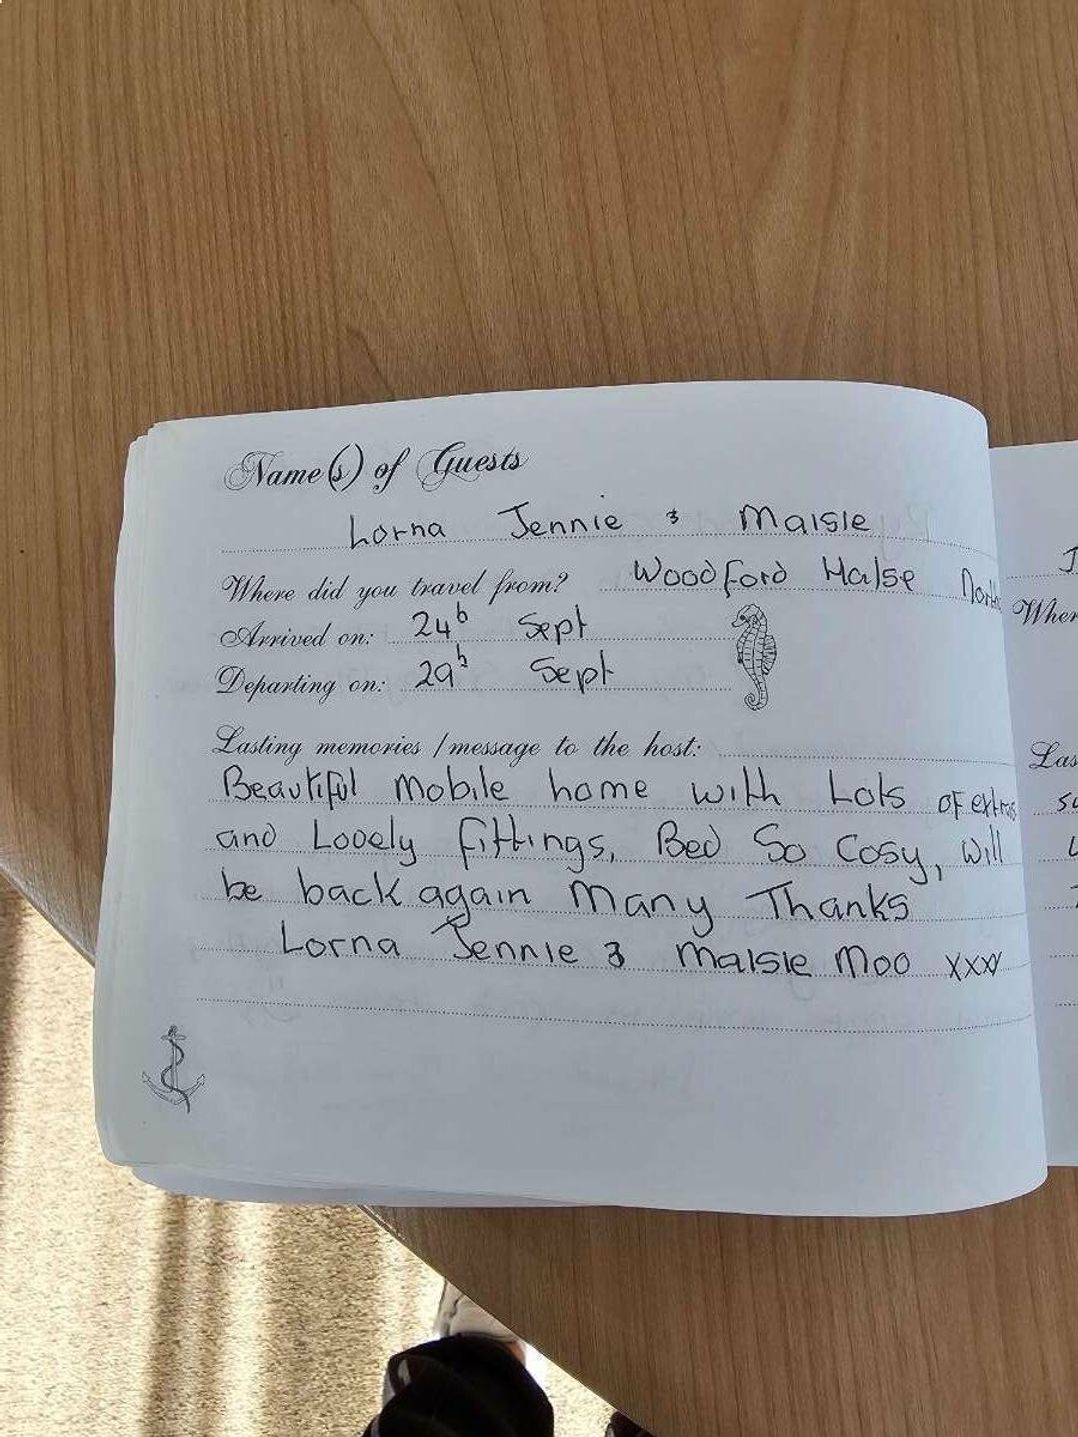 Name(s) of Guests
Lorna Jennie & Maisie
Where did you travel from? Woodford Halse
Arrived on: 24th Sept
Departing on: 29th Sept
Lasting memories / message to the host:
Beautiful Mobile home with Lots of extras
and Lovely fittings, Bed So Cosy, Will
be back again Many Thanks
Lorna Jennie & Maisie Moo xxxx